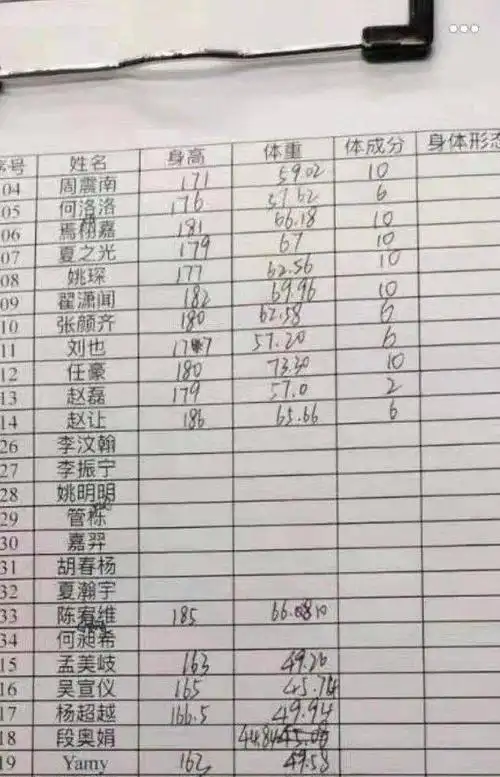 序号 姓名 身高 体重 体成分 身体形态
04 周震南 171 59.02 10
05 何洛洛 176 57.62 6
06 焉栩嘉 181 66.18 10
07 夏之光 179 67 10
08 姚琛 177 62.56 10
09 翟潇闻 182 69.96 10
10 张颜齐 180 62.58 6
11 刘也 177 57.20 6
12 任豪 180 73.30 10
13 赵磊 179 57.0 2
14 赵让 186 65.66 6
26 李汶翰
27 李振宁
28 姚明明
29 管栎
30 嘉羿
31 胡春杨
32 夏瀚宇
33 陈宥维 185 66.10
34 何昶希
15 孟美岐 163 49.20
16 吴宣仪 165 45.74
17 杨超越 166.5 49.94
18 段奥娟 44.84
19 Yamy 162 49.58